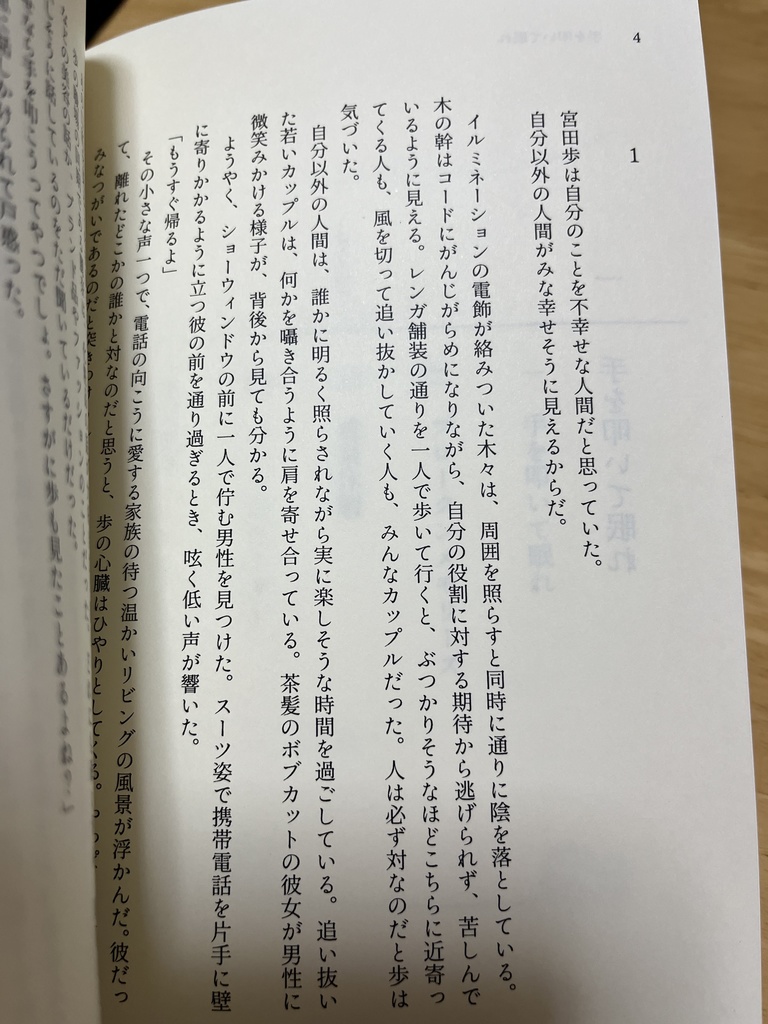 4
1
宮田歩は自分のことを不幸せな人間だと思っていた。
自分以外の人間がみな幸せそうに見えるからだ。
イルミネーションの電飾が絡みついた木々は、周囲を照らすと同時に通りに陰を落としている。
木の幹はコードにがんじがらめになりながら、自分の役割に対する期待から逃げられず、苦しんで
いるように見える。レンガ舗装の通りを一人で歩いて行くと、ぶつかりそうなほどこちらに近寄っ
てくる人も、風を切って追い抜かしていく人も、みんなカップルだった。人は必ず対なのだと歩は
気づいた。
自分以外の人間は、誰かに明るく照らされながら実に楽しそうな時間を過ごしている。追い抜い
た若いカップルは、何かを囁き合うように肩を寄せ合っている。茶髪のボブカットの彼女が男性に
微笑みかける様子が、背後から見ても分かる。
ようやく、ショーウィンドウの前に一人で佇む男性を見つけた。スーツ姿で携帯電話を片手に壁
に寄りかかるように立つ彼の前を通り過ぎるとき、呟く低い声が響いた。
「もうすぐ帰るよ」
その小さな声一つで、電話の向こうに愛する家族の待つ温かいリビングの風景が浮かんだ。彼だっ
て、離れたどこかの誰かと対なのだと思うと、歩の心臓はひやりとしてくる。
みなつがいであるのだと突き